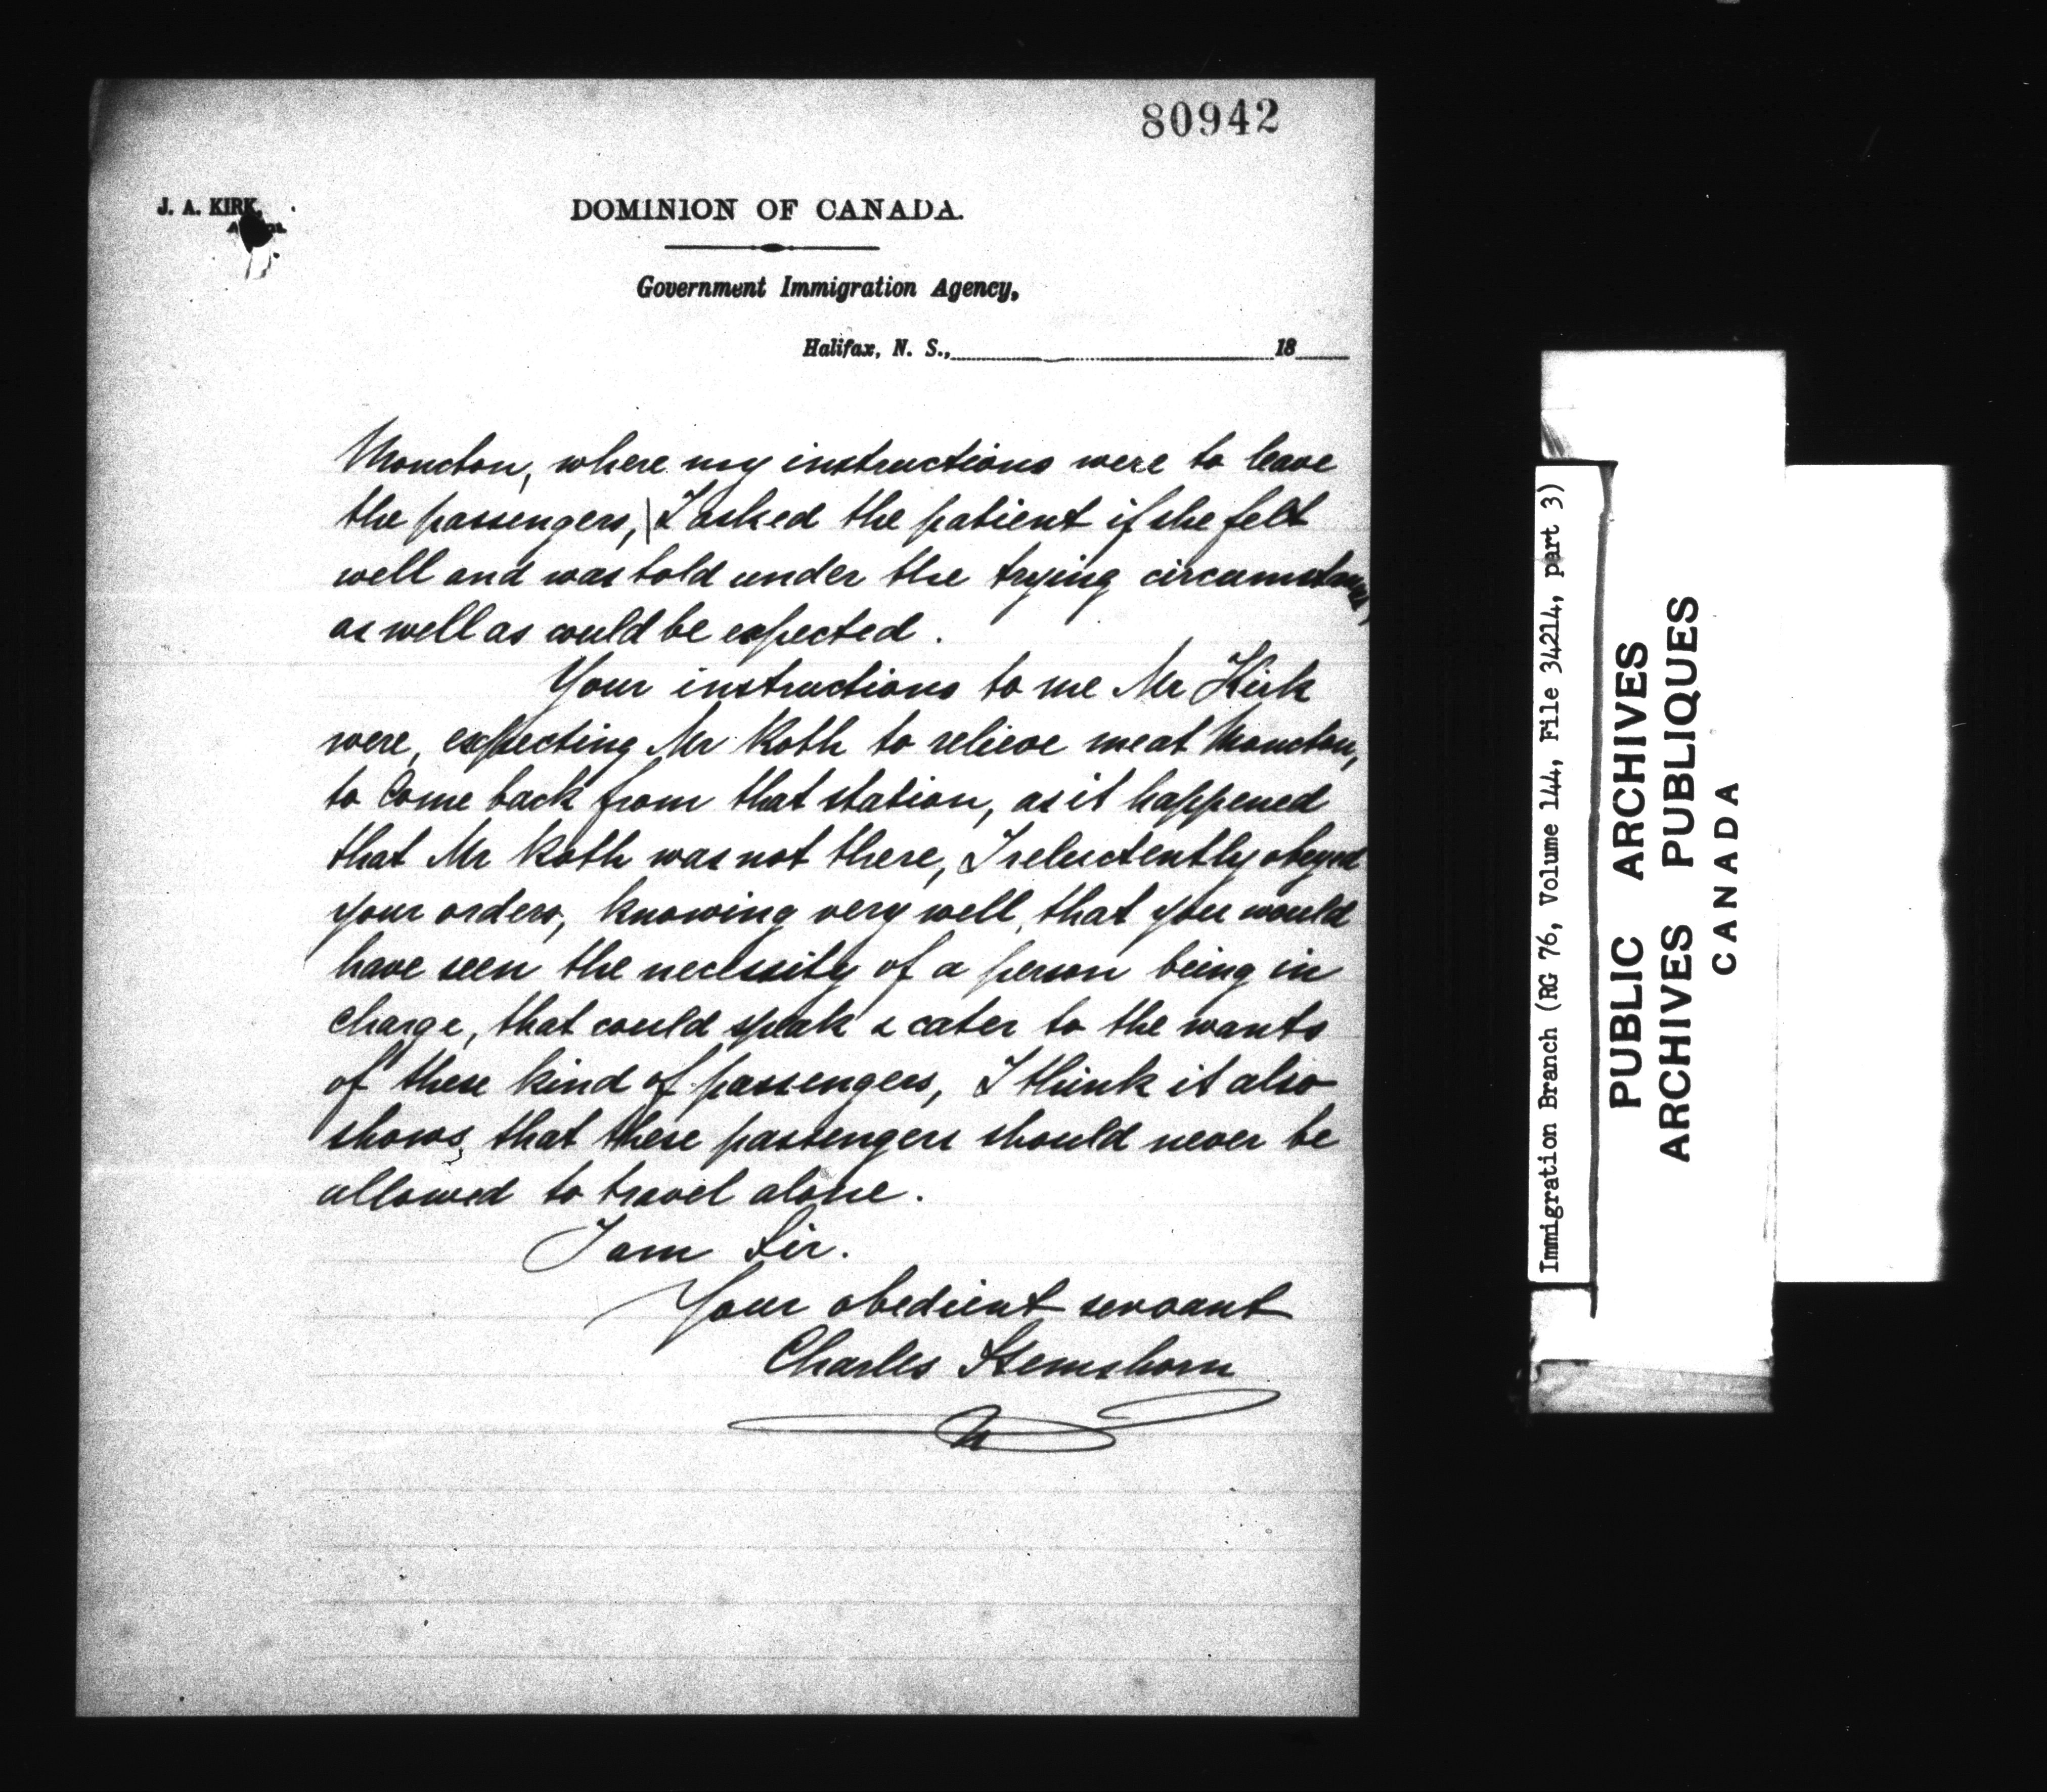 80942
J. A. KIRK,
DOMINION OF CANADA.
Government Immigration Agency,
Halifax, N. S., 18
Moncton, where my instructions were to leave
the passengers, I asked the patient if she felt
well and was told under the trying circumstances,
as well as could be expected.
Your instructions to me Mr Kirk
were, expecting Mr Koth to relieve me at Moncton,
to Come back from that station, as it happened
that Mr Koth was not there, I reluctently obeyed
your orders, knowing very well, that you would
have seen the necessity of a person being in
charge, that could speak & cater to the wants
of these kind of passengers, I think it also
shows, that these passengers should never be
allowed to travel alone.
I am Sir.
Your obedient servant
Charles Stemshorn
Immigration Branch (RG 76, Volume 144, File 34214, part 3)
PUBLIC ARCHIVES
ARCHIVES PUBLIQUES
CANADA